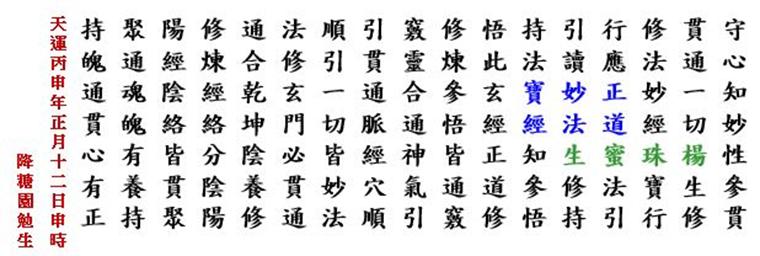 守心知妙性參貫
貫通一切楊生修
修法妙經珠寶行
行應正道蜜法引
引讀妙法生修持
持法寶經知參悟
悟此玄經正道修
修煉參悟皆通竅
竅靈合通神氣引
引貫通脈經穴順
順引一切皆妙法
法修玄門必貫通
通合乾坤陰養修
修煉經絡分陰陽
陽經陰絡皆貫聚
聚通魂魄有養持
持魄通貫心有正
天運丙申年正月十二日申時
降糖園勉生